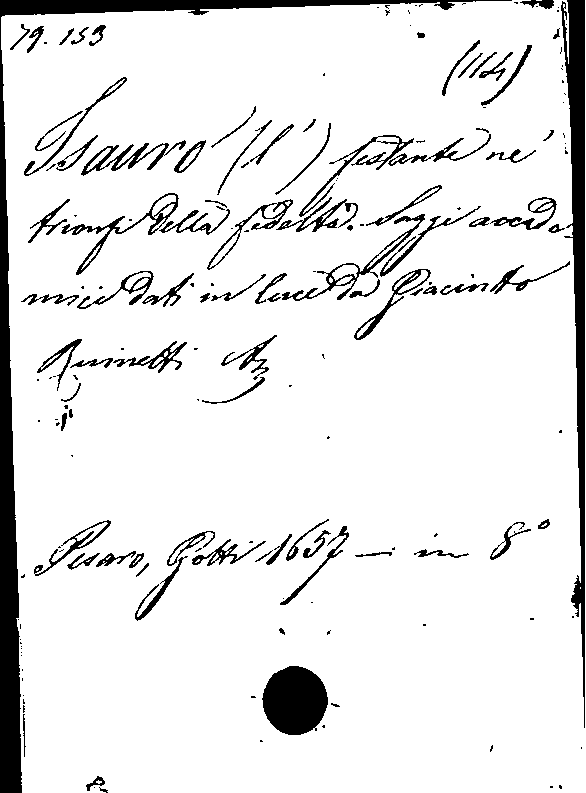 79. 153
(114)
Isauro (l') festante ne'
trionfi della fedeltà. Saggi accade-
mici dati in luce da Giacinto
Pesaro, Gotti 1657 — in 8°